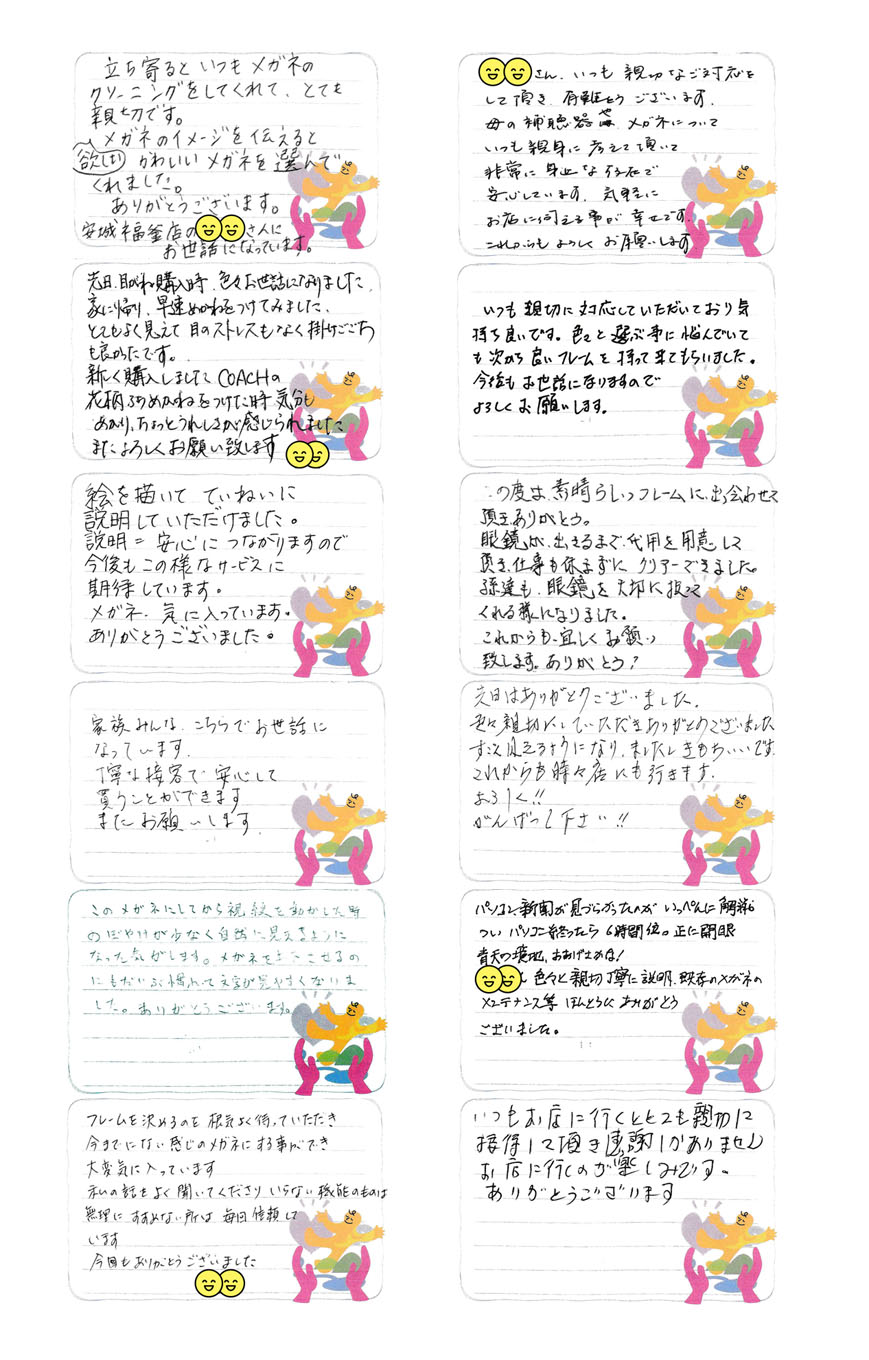 立ち寄ると いつも メガネの
クリーニングをしてくれて、とても
親切です。
メガネのイメージを伝えると
欲しい かわいい メガネを選んで
くれました。
ありがとうございます。
安城福釜店の さんに
お世話になっています。
先日、目がね購入時、色々お世話になりました。
家に帰り、早速めがねをつけてみました、
とてもよく見えて 目のストレスもなく掛けごこち
も良かったです。
新しく購入しました COACHの
花柄 めがねをつけた時 気分も
あがり、ちょっとうれしさが感じられました
またよろしくお願い致します
絵を描いて ていねいに
説明していただけました。
説明=安心に つながりますので
今後もこの様なサービスに
期待しています。
メガネ、気に入っています。
ありがとうございました。
家族みんな、こちらでお世話に
なっています。
丁寧な接客で 安心して
買うことができます
また お願いします
このメガネにしてから視線を動かした時
のぼやけが少なく自然に見えるように
なった気がします。メガネを させるの
にもだいぶ慣れて文字が見やすくなりま
した。ありがとうございます。
フレームを決めるのを 根気よく待っていただき
今までにない感じのメガネにする事ができ
大変気に入っています
私の話をよく聞いてくださり いらない機能のものは
無理に すすめない所は 毎回信頼して
います
今回もありがとうございました
さん、いつも 親切なご対応を
して頂き、有難とう ございます。
母の 補聴器や メガネについて
いつも 親身に 考えて頂いて
非常に 身近な存在で
安心しています。 気軽に
お店に伺える事が 幸せです。
これからも よろしく お願いします
いつも 親切に 対応していただいており 気
持ち良いです。色々と 選ぶ事に 悩んでいて
も 次から 良い フレームを 持って来てもらいました。
今後も お世話になりますので
よろしくお願いします。
の度は、素晴らしいフレームに、出会わせて
頂き、ありがとう。
眼鏡が、出きるまで、代用を用意して
頂き、仕事も休まずに クリアーできました。
孫達も、眼鏡を大切に扱って
くれる様になりました。
これからも、宜しくお願い
致します。ありがとう!
先日はありがとうございました。
色々親切にしていただきありがとうございました
すごく見えるようになり、またしきもちいいです。
これからも時々店にも行きます。
よろしく!!
がんばって下さい!!
パソコン、新聞が見づらかったのが いっぺんに解消
つい パソコン終ったら 6時間位。正に開眼
青天の 、おおげさかな!
色々と親切丁寧に説明、既存のメガネの
メンテナンス等 ほんとうに ありがとう
ございました。
いつもお店に行くととても親切に
接待して頂き 感謝しかありません
お店に行くのが楽しみです。
ありがとうございます